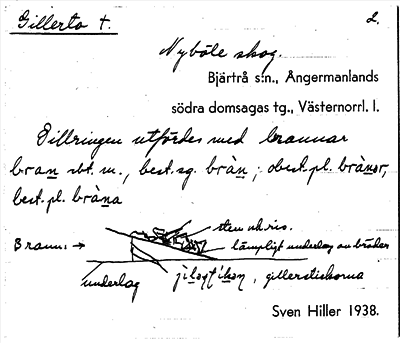 Gillerto t.
2.
Nyböle skog.
Bjärtrå s:n., Ångermanlands
södra domsagas tg., Västernorrl. l.
Gillringen utfördes med brannar
bran sbt. m., best. sg. bràn; obest. pl. brànor,
best. pl. bràna
sten ok ris.
Brann: → lämpligt underlag av bräder
underlag gillerstickorna
Sven Hiller 1938.